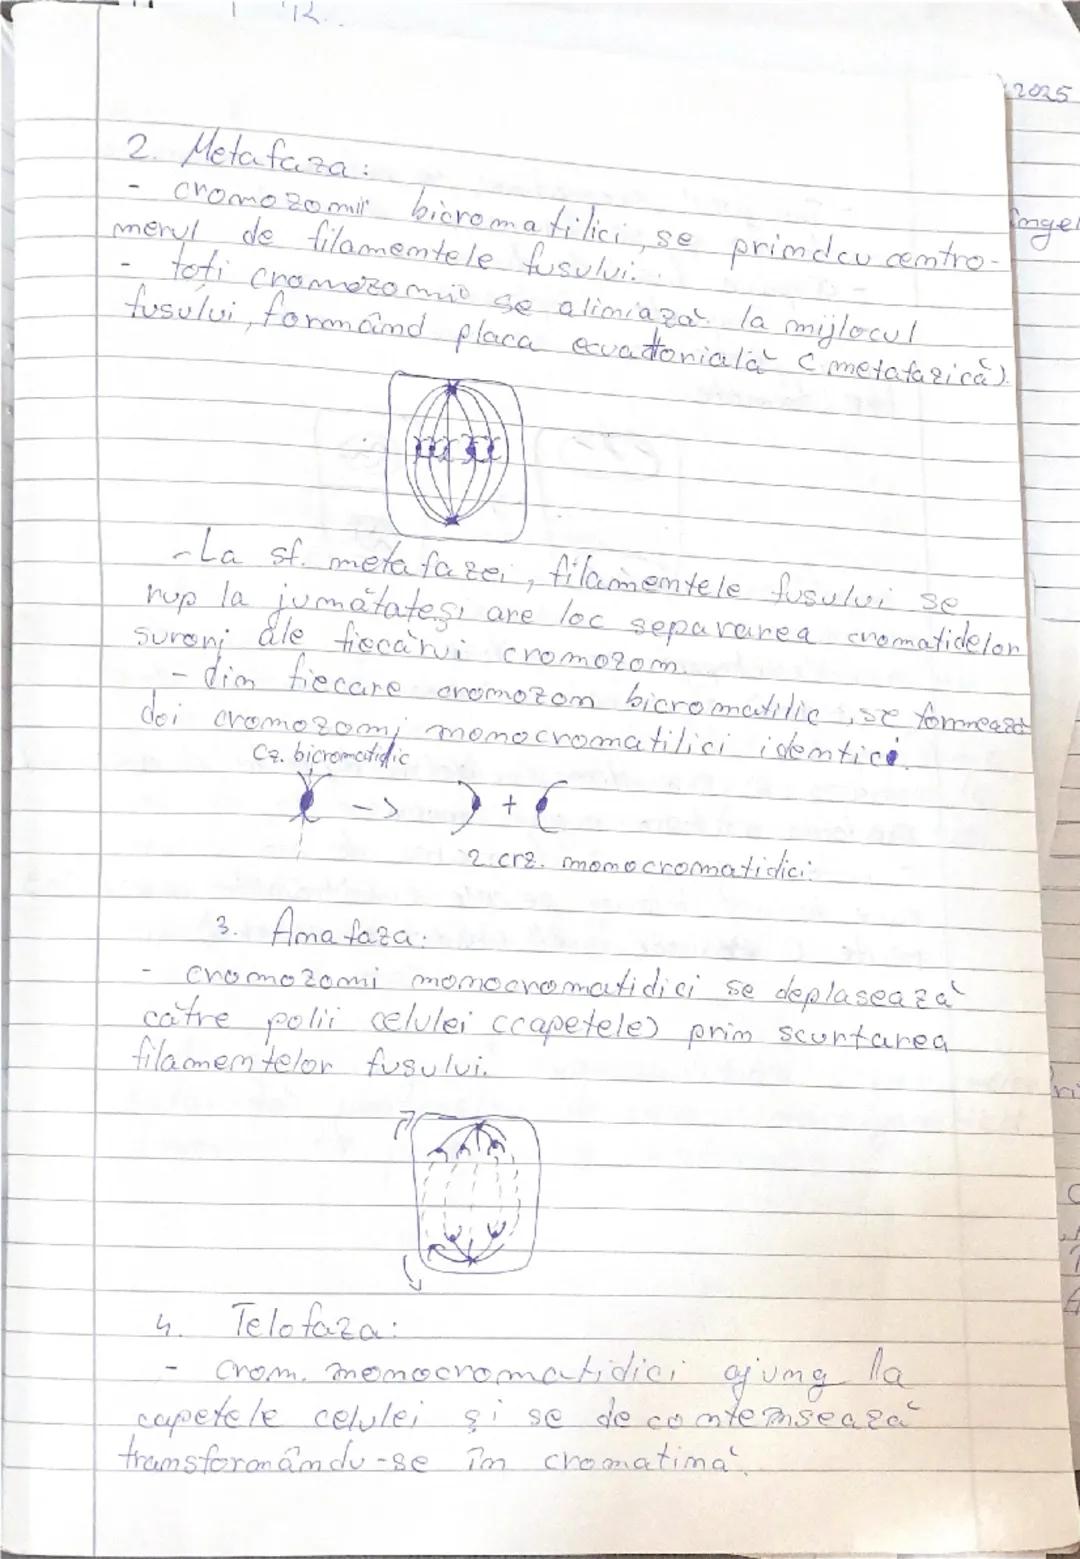 2025
2. Metafaza:
- cromozomii bicromatilici, se prind cu centro-
merul de filamentele fusului.
- toți cromozomii se aliniază la mijlocul
fusului, formând placa ecuatorială (metafazică).
-La sf. metafazei, filamentele fusului se
rup la jumătate și are loc separarea cromatidelor
surori ale fiecărui cromozom.
- din fiecare cromozom bicromatilic, se formează
doi cromozomi monocromatilici identici.
Cz. bicromatidic
-> +
2 crz. monocromatidici
3. Anafaza:
- cromozomi monocromatidici se deplasează
către polii celulei (capetele) prin scurtarea
filamentelor fusului.
4. Telofaza:
- crom. monocromatidici ajung la
capetele celulei și se decontensează
transformându-se în cromatină.